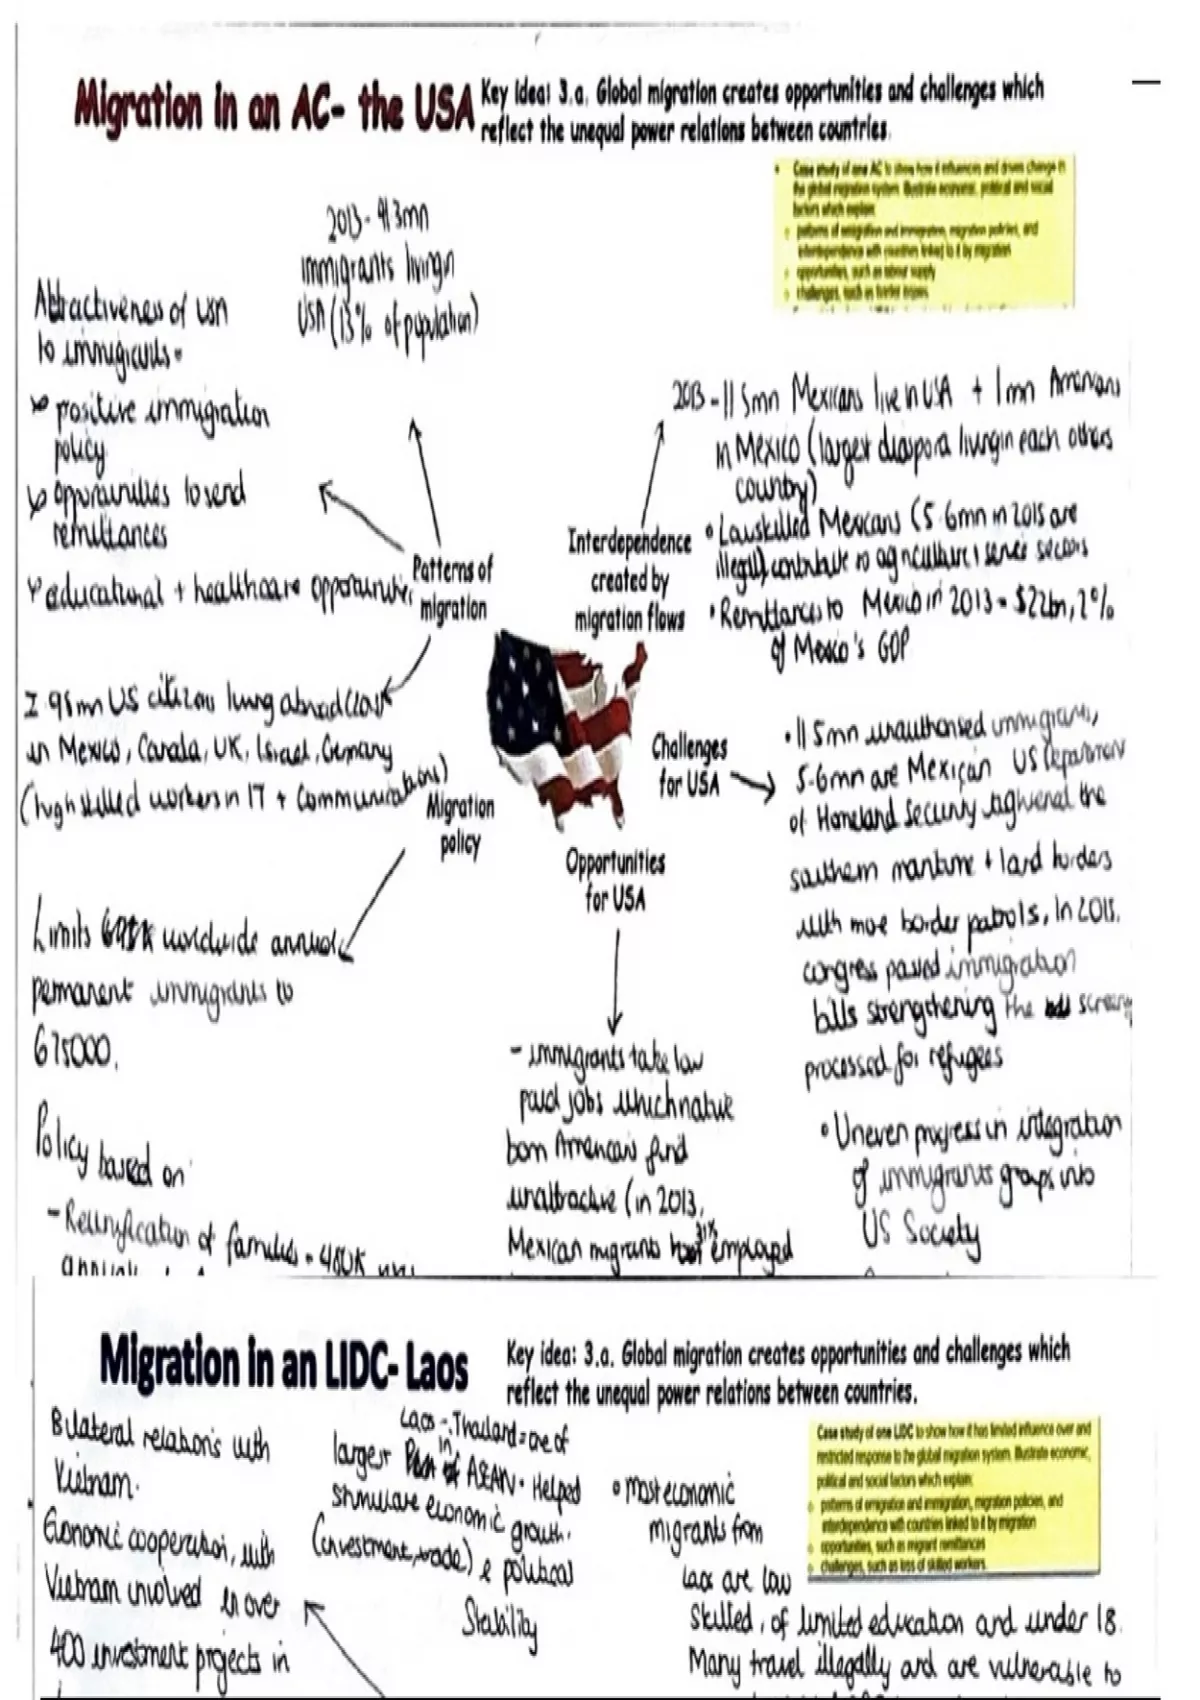 Migration in an AC- the USA
Key idea: 3.a. Global migration creates opportunities and challenges which
reflect the unequal power relations between countries.
Case study of one AC to show how it influences and drives change in
the global migration system. Illustrate economic, political and social
factors which explain:
patterns of emigration and immigration, migration policies, and
interdependence with countries linked to it by migration
opportunities, such as labour supply
challenges, such as border
2013- 41 3mn
immigrants living in
USA (13% of population)
Attractiveness of USA
to immigrants-
positive immigration
policy
opportunities to send
remittances
educational + healthcare opportunities
Patterns of
migration
2.98mn US citizens living abroad (
in Mexico, Canada, UK, Israel, Germany
(high skilled workers in IT + Communications)
Migration
policy
Limits worldwide annual
permanent immigrants to
675000.
Policy based on
- Reunification of families - 480K
Interdependence
created by
migration flows
2013 - 11 5mn Mexicans live in USA + 1mn Americans
in Mexico (largest diaspora living in each others
country)
• Low skilled Mexicans (5 6mn in 2015 are
illegal) contribute to agriculture + service sectors
• Remittances to Mexico in 2013 - $22bn, 2%
of Mexico's GDP
Challenges
for USA
• 11 5mn unauthorised immigrants,
5.6mn are Mexican US Department
of Homeland Security tightened the
southern maritime + land borders
with more border patrols, In 2015,
congress passed immigration
bills strengthening the
processed for refugees
• Uneven progress in integration
of immigrants groups into
US Society
Opportunities
for USA
- immigrants take low
paid jobs which native
born Americans find
unattractive (in 2013,
Mexican migrants 31% employed
Migration in an LIDC- Laos
Key idea: 3.a. Global migration creates opportunities and challenges which
reflect the unequal power relations between countries.
Case study of one LIDC to show how it has limited influence over and
restricted response to the global migration system. Illustrate economic,
political and social factors which explain:
patterns of emigration and immigration, migration policies, and
interdependence with countries linked to it by migration
opportunities, such as migrant remittances
challenges, such as loss of skilled workers.
Bilateral relations with
Vietnam.
Economic cooperation, with
Vietnam involved in over
400 investment projects in
Laos - Thailand = one of
largest in ASEAN. Helped
stimulate economic growth.
(investment, trade) & political
Stability
• most economic
migrants from
Laos are low
skilled, of limited education and under 18.
Many travel illegally and are vulnerable to